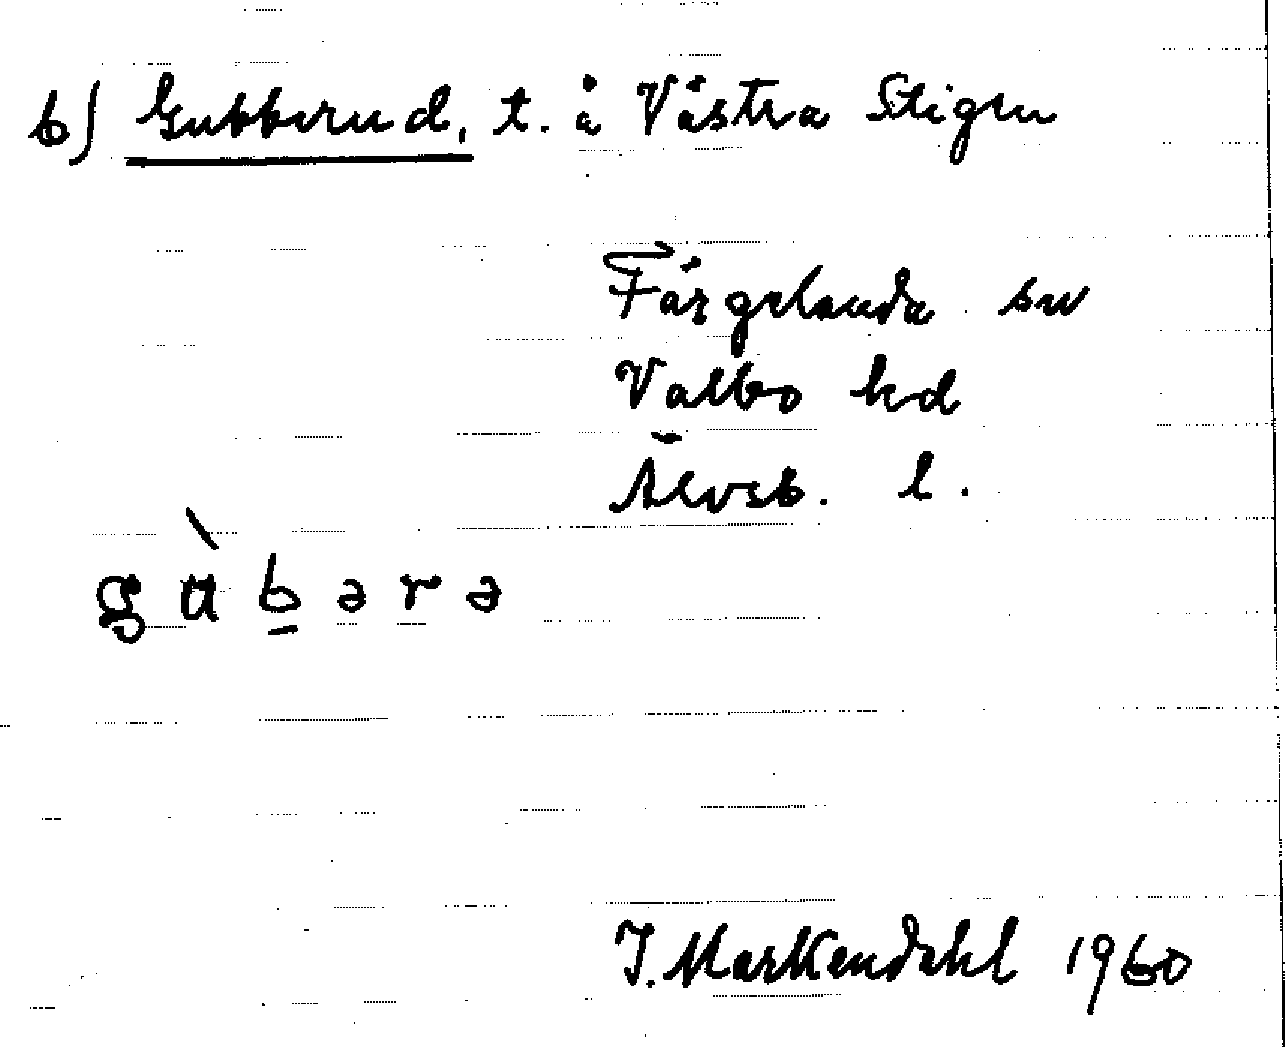 b) Gubberud, t. å Västra Stigen
Färgelanda sn
Valbo hd
Älvsb. l.
gùbərə
J. Markendahl 1960